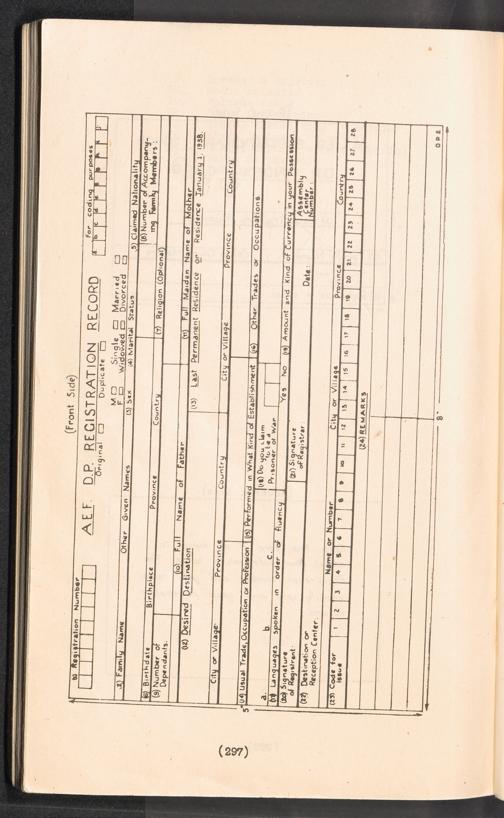 (Front Side)
(1) Registration Number
A.E.F. D.P. REGISTRATION RECORD
For coding purposes
Original Duplicate
(2) Family Name Other Given Names
M Single Married
F Widowed Divorced
(3) Sex (4) Marital Status
(5) Claimed Nationality
(6) Birthdate Birthplace Province Country
(7) Religion (Optional)
(8) Number of Accompany-
ing Family Members:
(9) Number of
Dependants.
(10) Full Name of Father
(11) Full Maiden Name of Mother
(12) Desired Destination
(13) Last Permanent Residence or Residence January 1, 1938.
City or Village Province Country City or Village Province Country
(14) Usual Trade, Occupation or Profession (15) Performed in What Kind of Establishment (16) Other Trades or Occupations
a. b. c.
(17) Languages spoken in order of fluency
(18) Do you claim
to be a
Prisoner of War
Yes No
(19) Amount and Kind of Currency in your Possession
(20) Signature
of Registrant:
(21) Signature
of Registrar
Date:
Assembly
Center
Number.
(22) Destination or
Reception Center:
Name or Number City or Village Province Country
(23) Code for
Issue
1 2 3 4 5 6 7 8 9 10 11 12 13 14 15 16 17 18 19 20 21 22 23 24 25 26 27 28
(24) REMARKS
5"
8"
D.P.2.
(297)